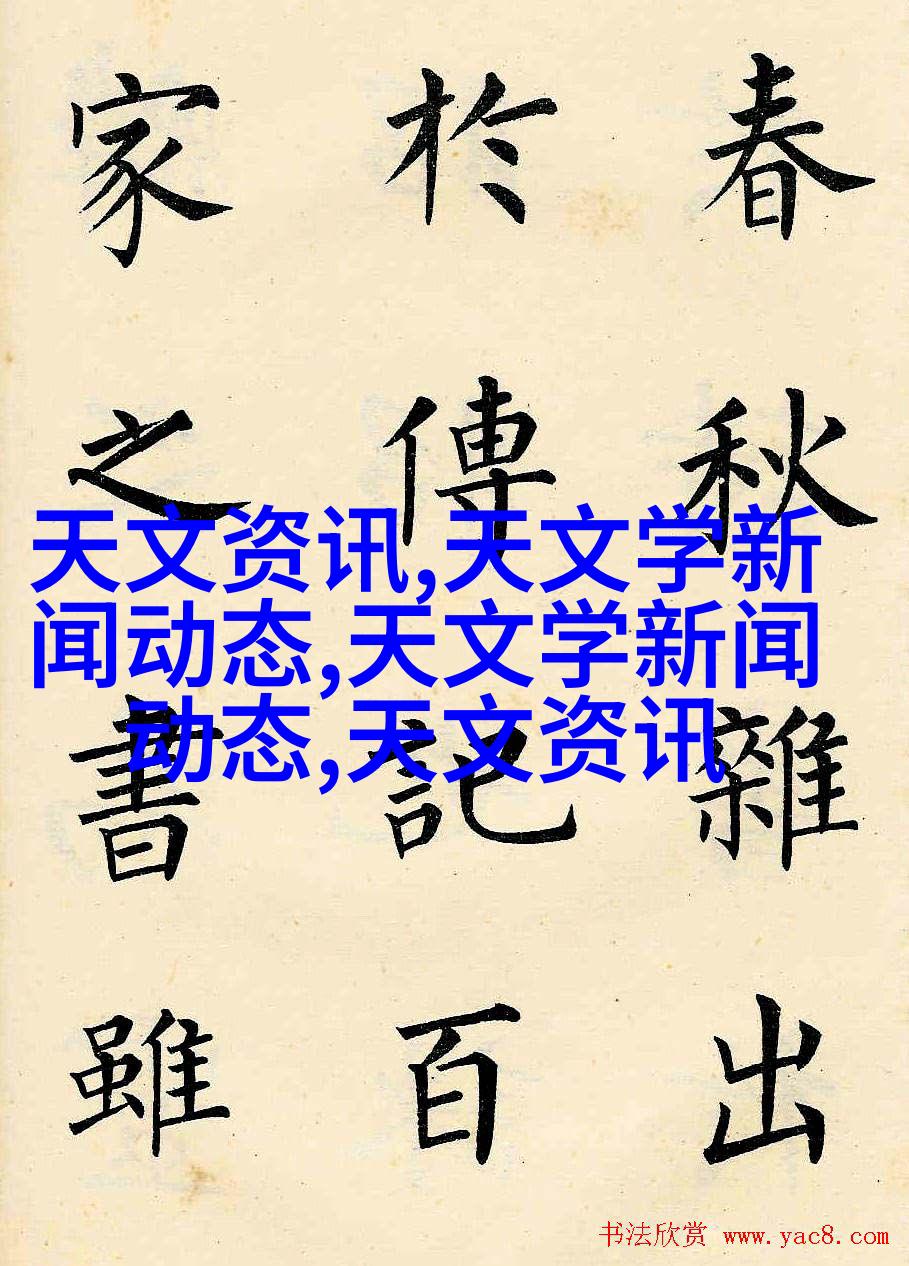 春秋雜出
於傳記百
家之書雖
天文资讯,天文学新
闻动态,天文学新闻
动态,天文资讯
书法欣赏 www.yac8.com